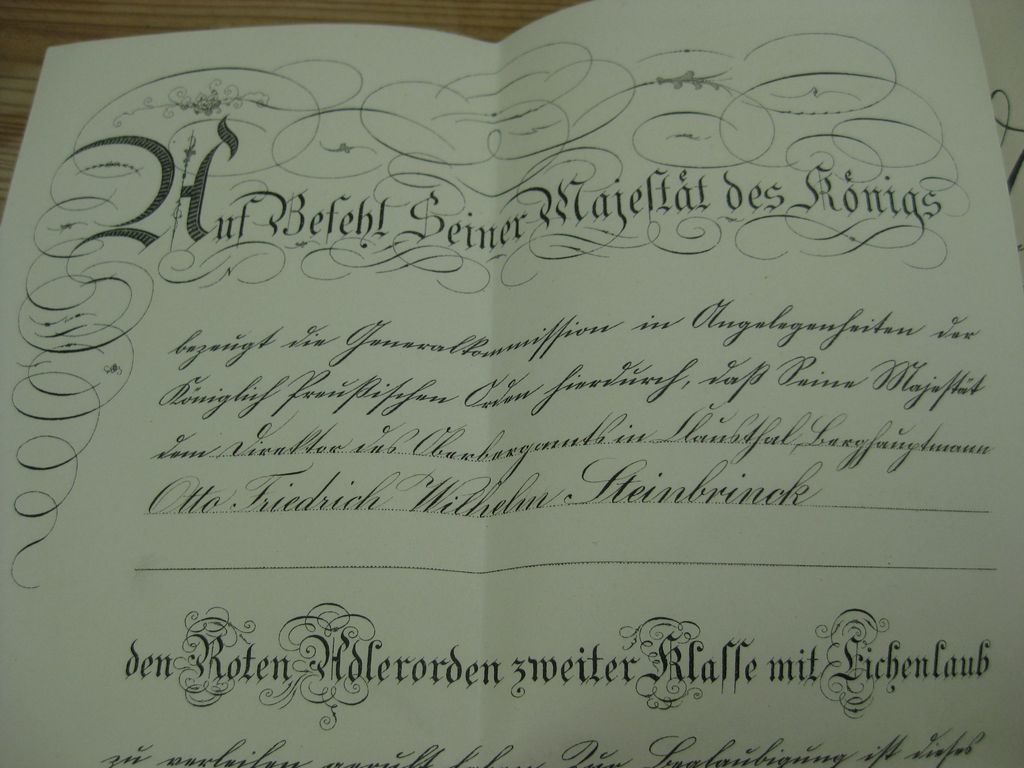 Auf Befehl Seiner Majestät des Königs
bezeugt die Generalkommission in Angelegenheiten der
Königlich Preußischen Orden hierdurch, daß Seine Majestät
dem Direktor des Oberbergamts in Clausthal, Berghauptmann
Otto Friedrich Wilhelm Steinbrinck
den Roten Adlerorden zweiter Klasse mit Eichenlaub
zu verleihen geruht haben. Zur Beglaubigung ist dieses